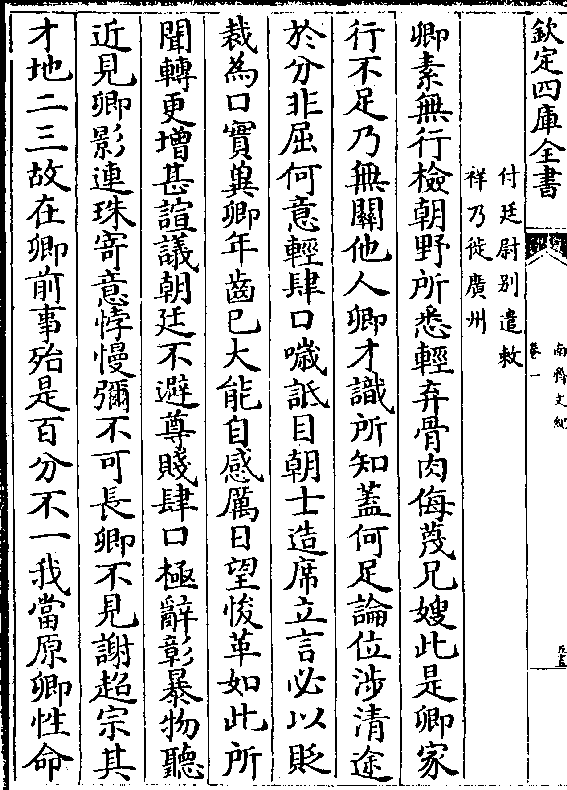 欽定四庫全書
南齊文紀
卷一
付廷尉别遣敕
祥乃徙廣州
卿素無行檢朝野所悉輕弃骨肉侮蔑兄嫂此是卿家
行不足乃無關他人卿才識所知蓋何足論位涉清途
於分非屈何意輕肆口噦詆目朝士造席立言必以貶
裁為口實冀卿年齒已大能自感厲日望悛革如此所
聞轉更增甚諠議朝廷不避尊賤肆口極辭彰暴物聽
近見卿影連珠寄意悖慢彌不可長卿不見謝超宗其
才地二三故在卿前事殆是百分不一我當原卿性命